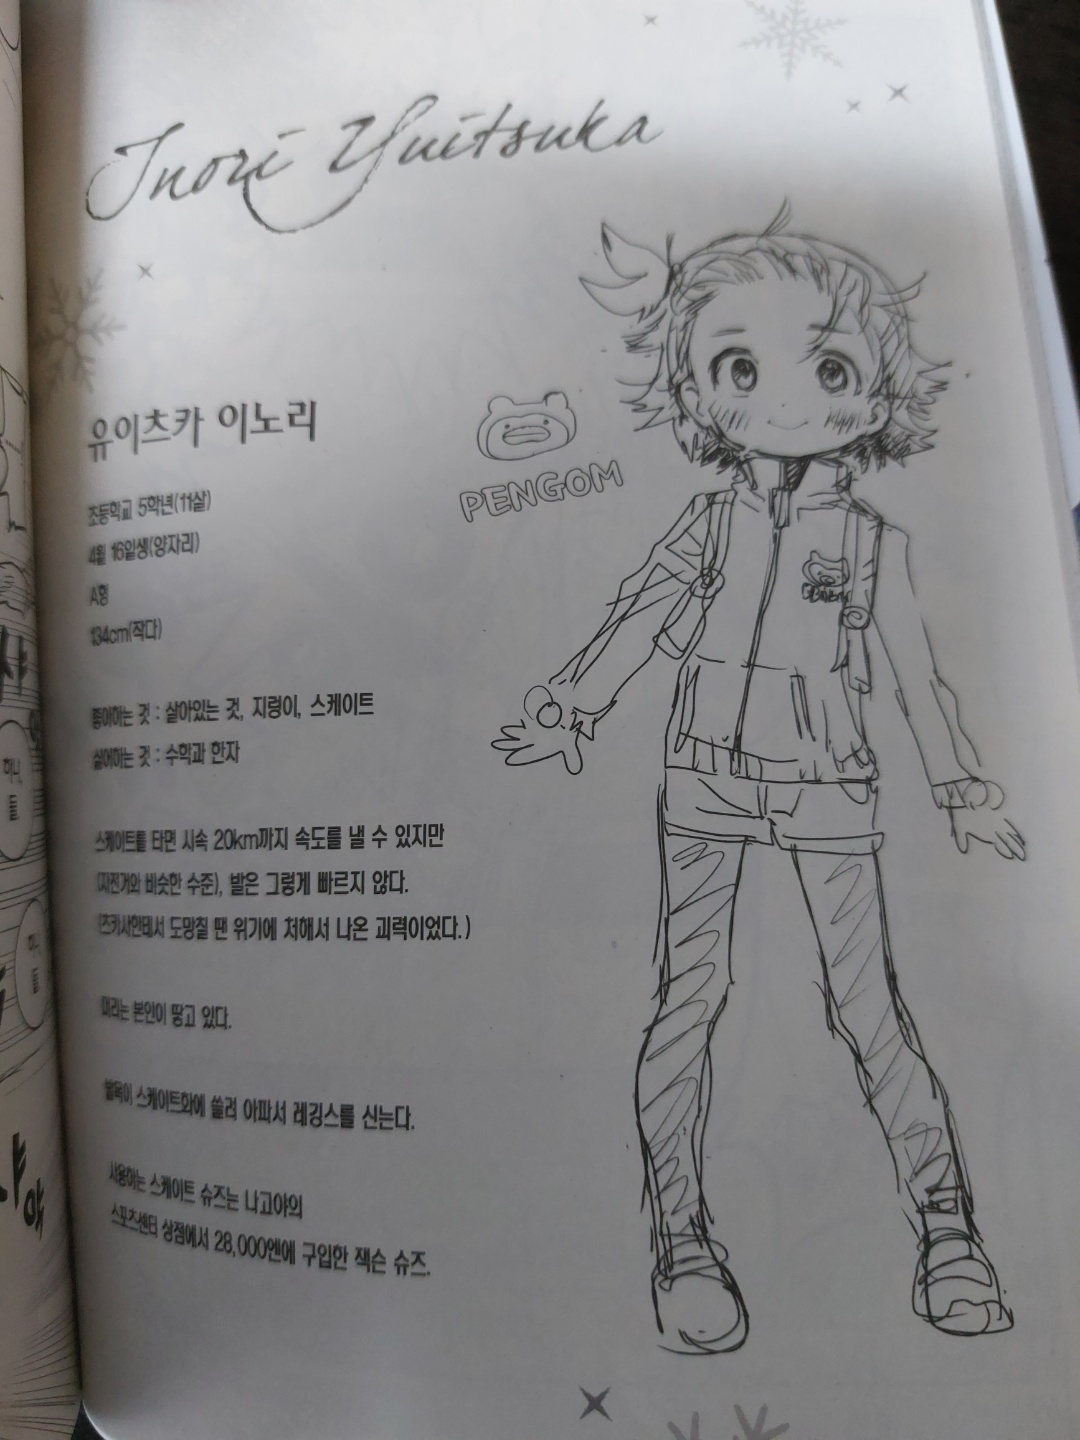 Inori Yuitsuka
유이츠카 이노리
초등학교 5학년(11살)
4월 16일생(양자리)
A형
134cm(작다)
PENGOM
좋아하는 것 : 살아있는 것, 지렁이, 스케이트
싫어하는 것 : 수학과 한자
스케이트를 타면 시속 20km까지 속도를 낼 수 있지만
(자전거와 비슷한 수준), 발은 그렇게 빠르지 않다.
(츠카사한테서 도망칠 땐 위기에 처해서 나온 괴력이었다.)
머리는 본인이 땋고 있다.
발목이 스케이트화에 쓸려 아파서 레깅스를 신는다.
사용하는 스케이트 슈즈는 나고야의
스포츠센터 상점에서 28,000엔에 구입한 잭슨 슈즈.